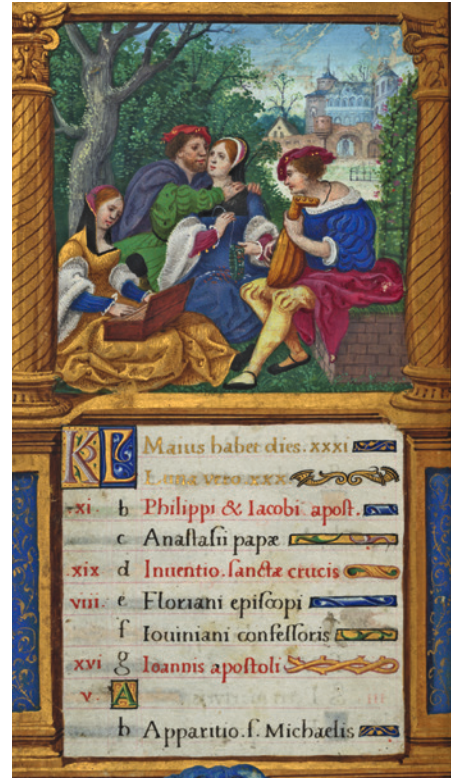 KL Maius habet dies. xxxi
Luna vero xxx
xi b Philippi & Iacobi apost.
c Anastasii papæ
xix d Inuentio. sanctæ crucis
viii. e Floriani episcopi
f Iouiniani confessoris
xvi g Ioannis apostoli
v A
b Apparitio. s. Michaelis